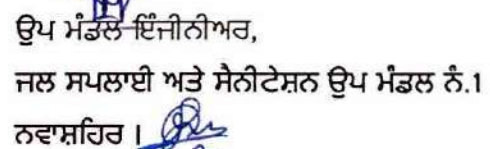 ਉਪ ਮੰਡਲ ਇੰਜੀਨੀਅਰ,
ਜਲ ਸਪਲਾਈ ਅਤੇ ਸੈਨੀਟੇਸ਼ਨ ਉਪ ਮੰਡਲ ਨੰ.1
ਨਵਾਸ਼ਹਿਰ ।